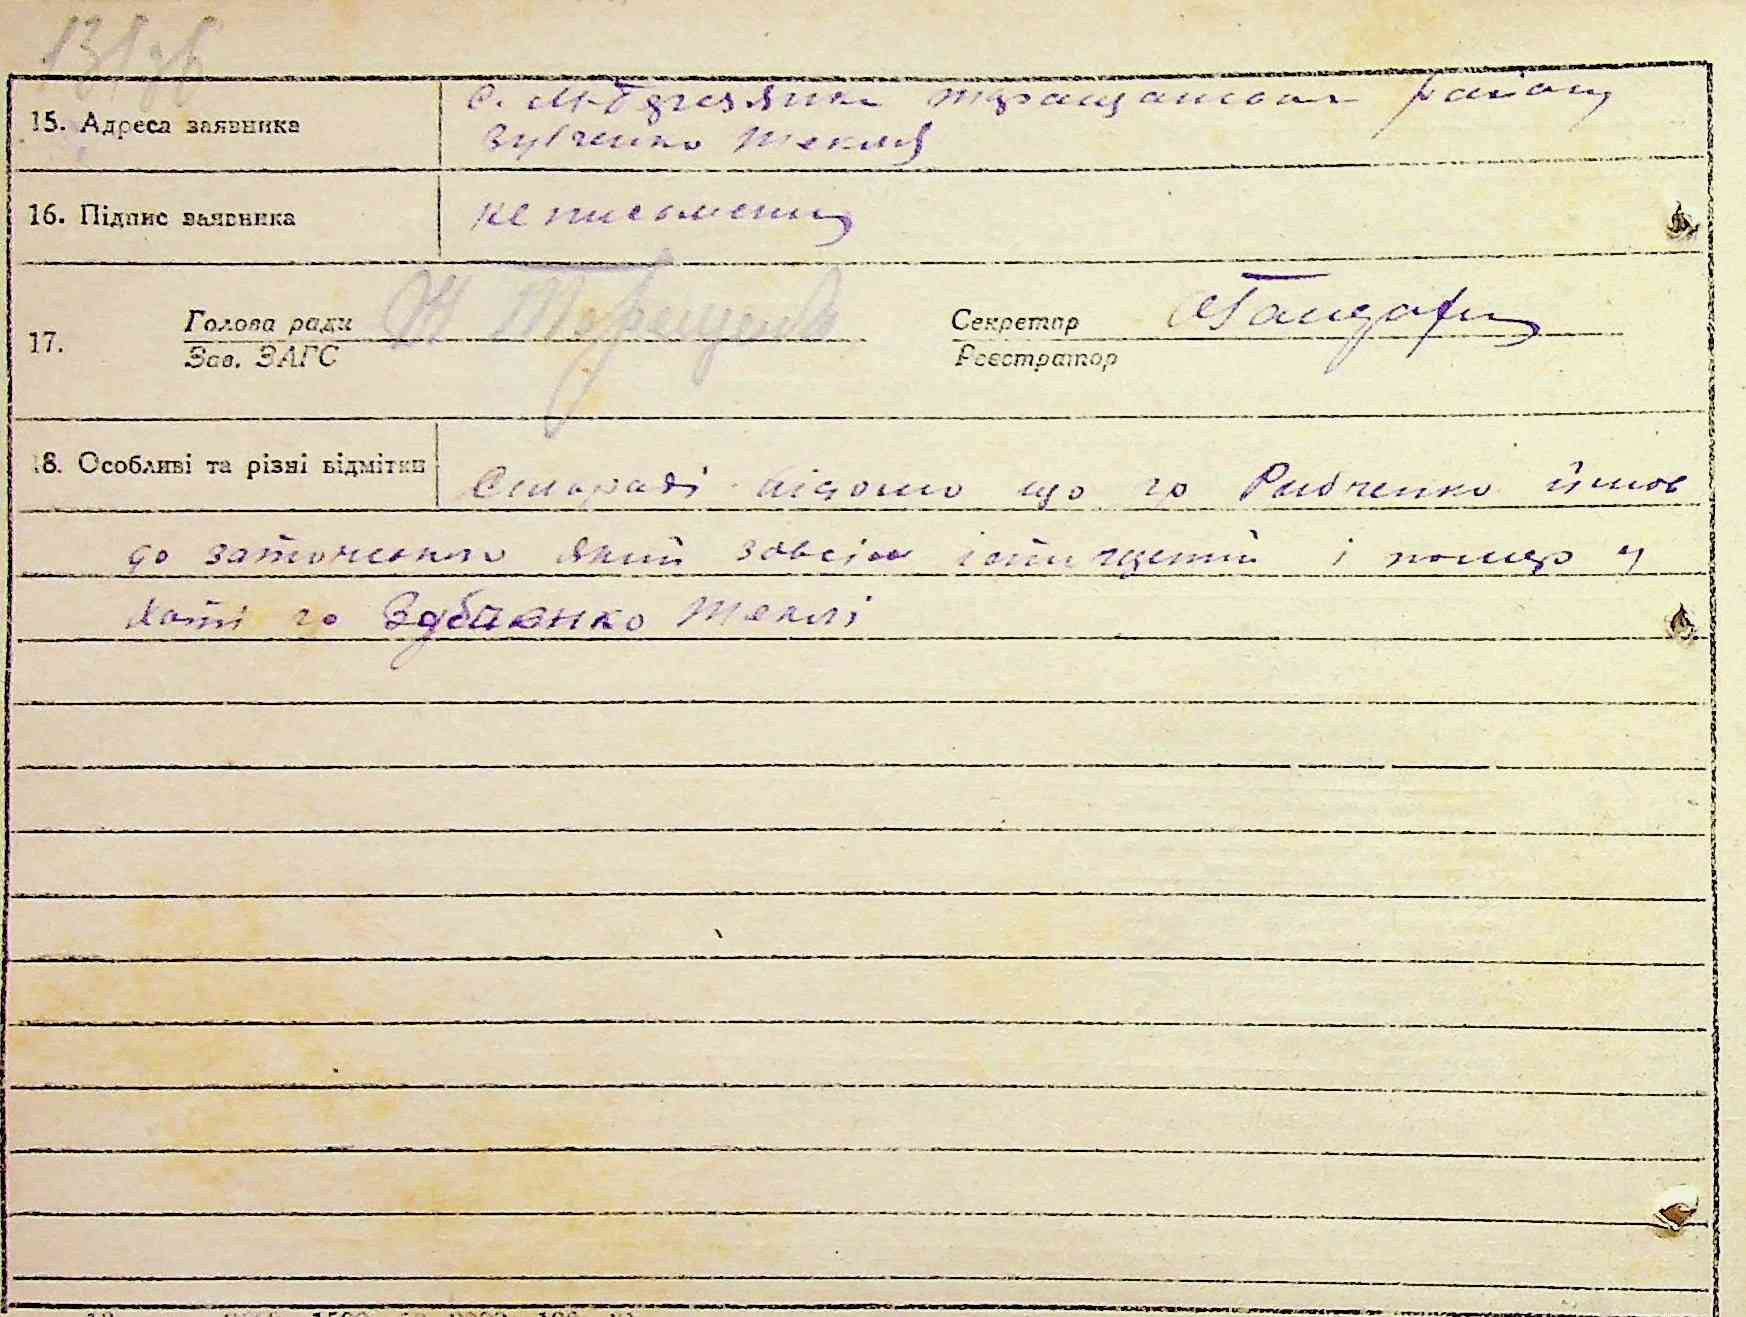 15. Адреса заявника
с. М-Березянка Таращанського району
Зубченко Текля
16. Підпис заявника
неписьменна
17.
Голова ради
Зав. ЗАГС
Терещенко
Секретар
Реєстратор
18. Особливі та різні відмітки
Сільраді відомо що гр Рибченко йшов
до зовсім і помер у
хаті гр Зубченко Теклі